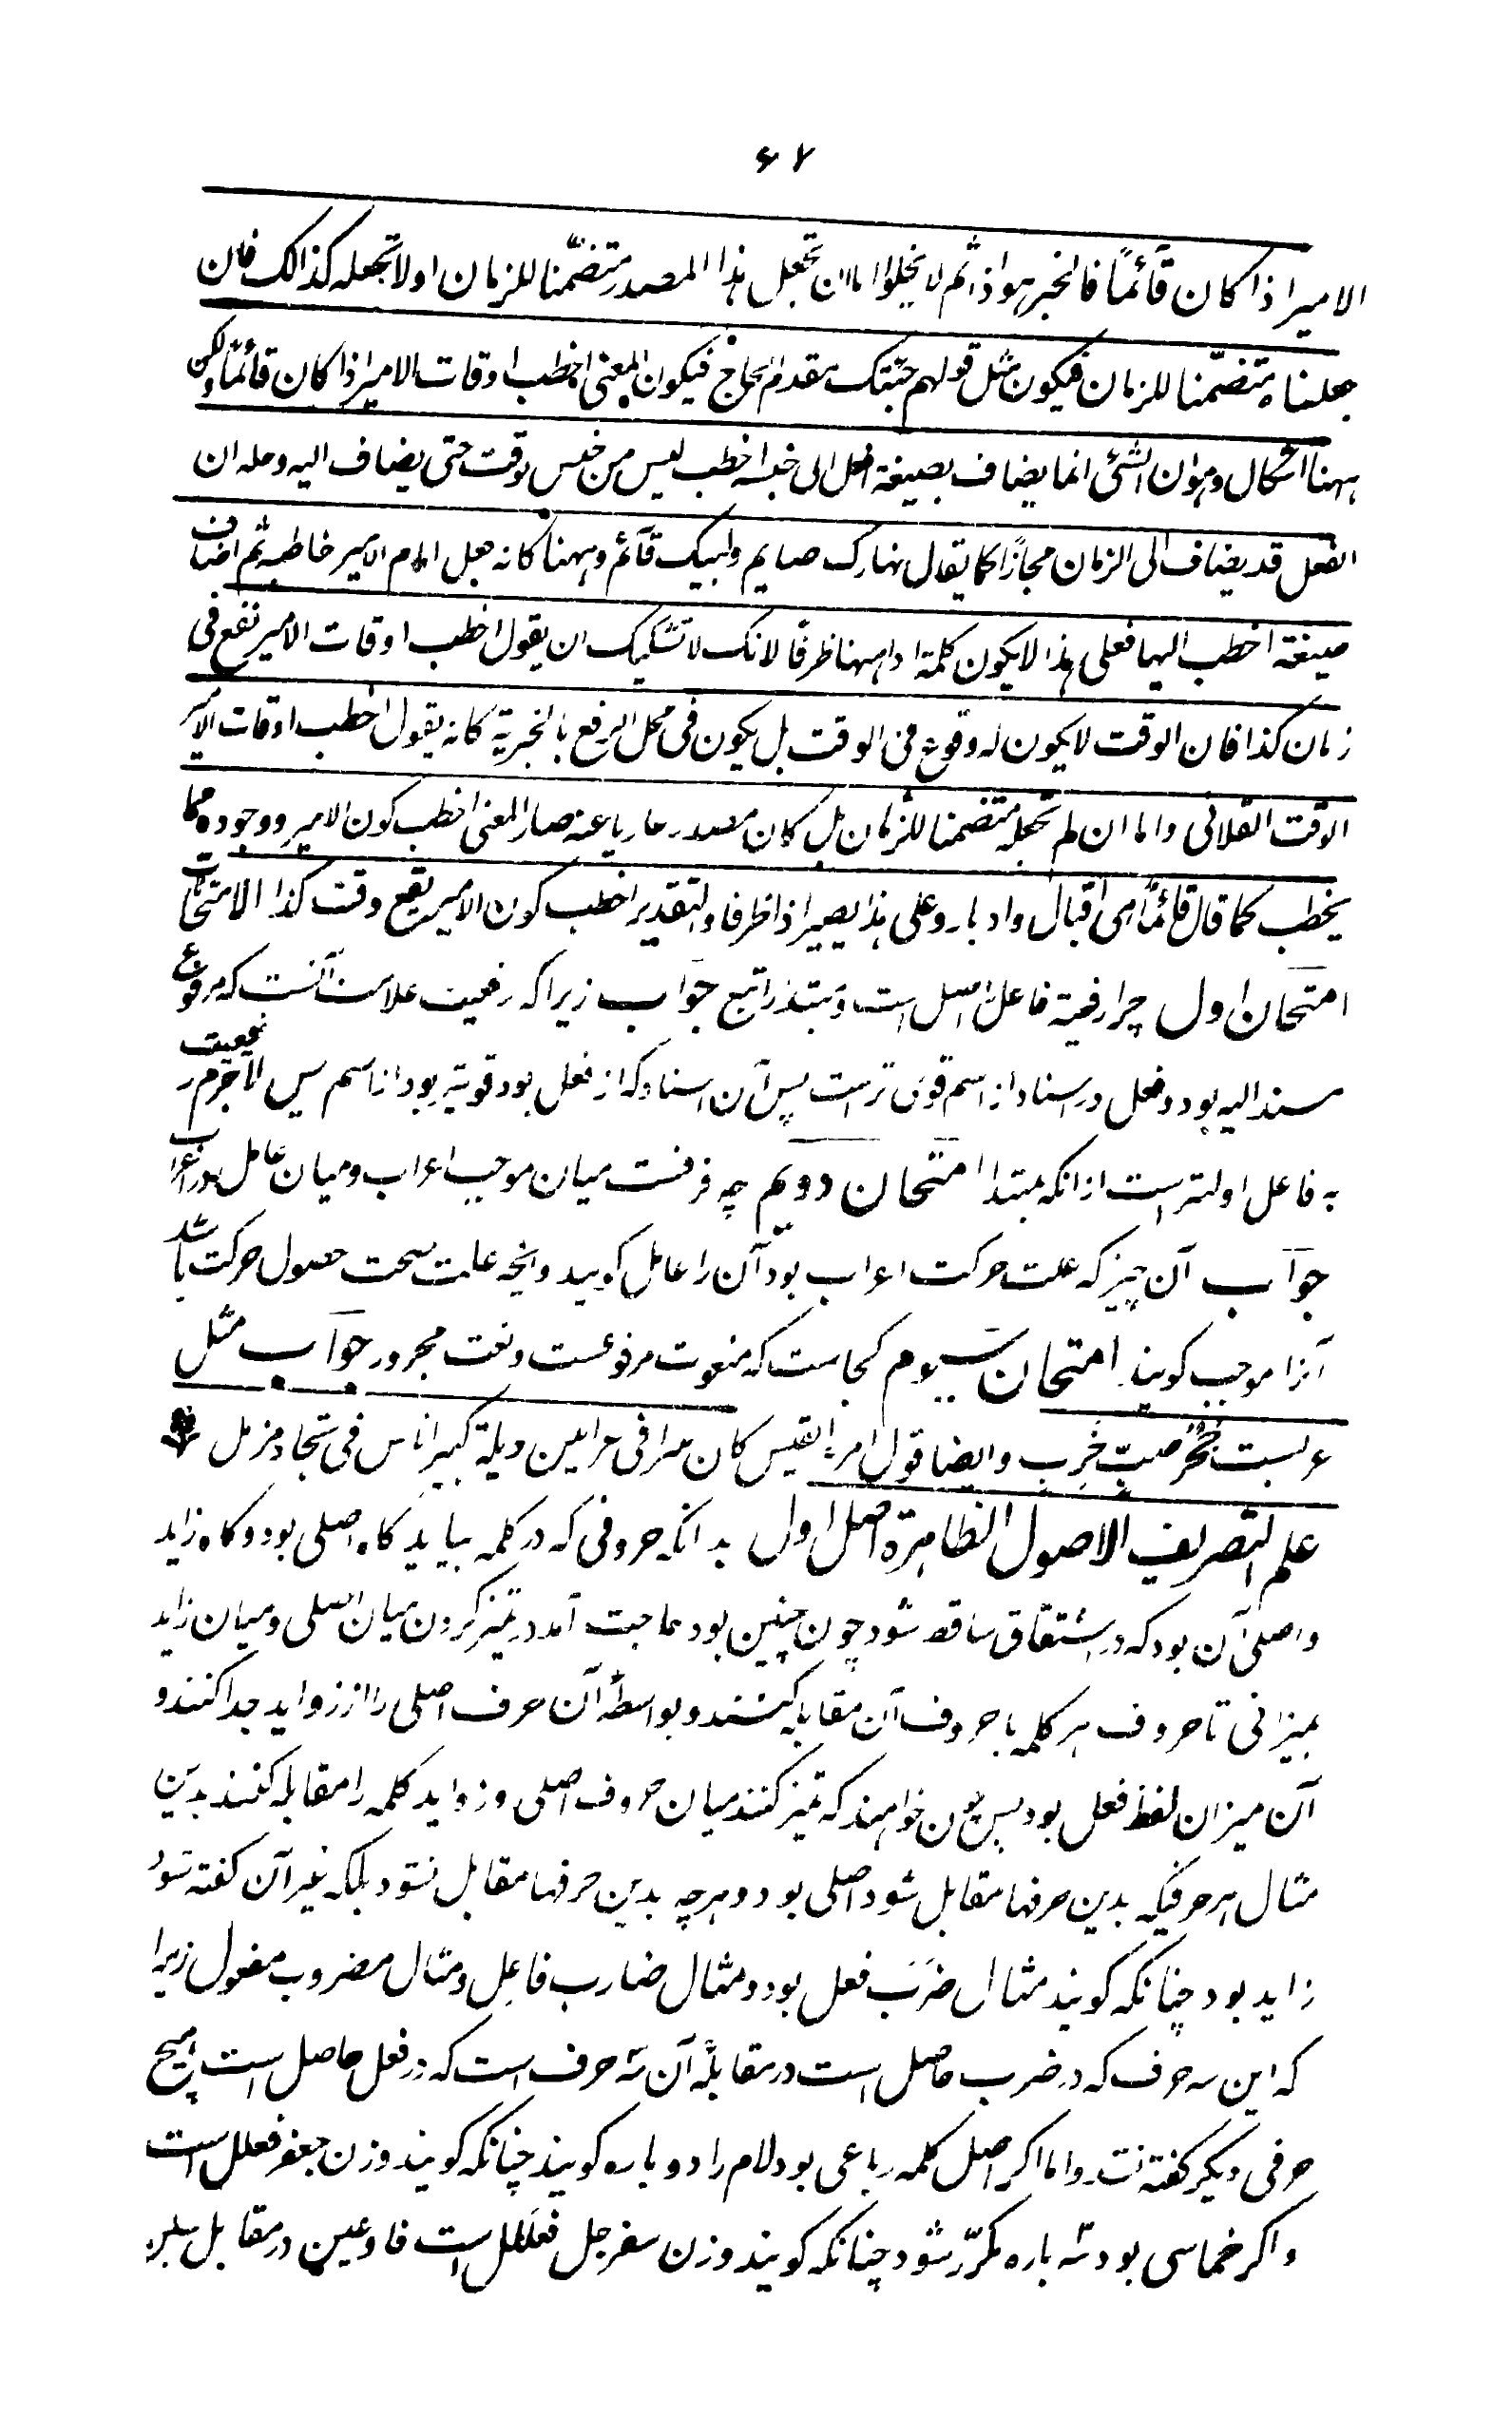 ۶۷
الامیر اذا کان قآئماً فالخبر هو اذا ثم لا یخلوا اما ان تجعل هذا المصدر متضمّنا للزمان او لا تجعله کذالک فان
جعلناه متضمّنا للزمان فیکون مثل قولهم جئتک مقدم الحاج فیکون المعنی اخطب اوقات الامیر اذا کان قآئماً ولکن
ههنا اشکال و هو ان الشئ انما یضاف بصیغة افعل الی جنسه اخطب لیس من جنس وقت حتی یضاف الیه و حله ان
الفعل قد یضاف الی الزمان مجازًا کما یقال نهارک صایم ولیلک قآئم و ههنا کانه جعل ایام الامیر خاطبه ثم اضاف
صیغة اخطب الیها فعلی هذا لا یکون کلمة اذا ههنا ظرفًا لانک لا تشکیک ان یقول اخطب اوقات الامیر تقع فی
زمان کذا فان الوقت لا یکون له وقوع فی الوقت بل یکون فی محل الرفع بالخبریة کانه یقول اخطب اوقات الامیر
الوقت الفلانی واما ان لم تجعله متضمنا للزمان بل کان مصدر عاریا عنه صار المعنی اخطب کون الامیر و وجوده مما
یخطب کما قال قائماً هی اقبال وادبار وعلی هذا یصییر اذا ظرفا والتقدیر اخطب کون الامیر یقع وقت کذا الامتحانات
امتحان اول چرا رفعیة فاعل اصل است و مبتدا تبع جواب زیرا که رفعیت علامت آنست که مرفوع
مسند الیه بود و فعل در اسناد از اسم قوی تر است پس آن اسناد که از فعل بود قویتر بود از اسم پس لاجرم رفعیت
به فاعل اولیتر است از انکه مبتدا امتحان دویم چه فرقست میان موجب اعراب و میان عامل در اعراب
جوآب آن چیز که علت حرکت اعراب بود آن را عامل کویید وانچه علت صحت حصول حرکت باشد
آنرا موجب کویند امتحان سیوم کجاست که منعوت مرفوعست و نعت مجرور جوآب مثل
جحرُ ضبٍّ خَرِبٍ و ایضا قول امرء القیس کان فی عرانین وبله کبیر اناس فی بجاد مزمل
علم التصریف الاصول الظاهرة اصل اول بدانکه حروفی که در کلمه بیاید کاه اصلی بود و کاه زاید
واصلی آن بود که در اشتقاق ساقط شود چون چنین بود حاجت آمد در تمیز کردن میان اصلی و میان زاید
بمیزانی تا حروف هر کلمه با حروف آن مقابله کنند و بواسطهٔ آن حرف اصلی را از زواید جدا کنند و
آن میزان لفظ فعل بود پس چون خواهند که تمیز کنند میان حروف اصلی و زواید کلمه را مقابله کنند بدین
مثال هر حرفیکه بدین حرفها مقابل شود اصلی بود و هرچه بدین حرفها مقابل نشود بلکه غیر آن کفته شود
زاید بود چنانکه کویند مثال ضَرَبَ فعل بود و مثال ضارب فاعِل و مثال مضروب مفعول زیرا
که این سه حرف که در ضرب حاصل است در مقابلهٔ آن سه حرف است که در فعل حاصل است و هیچ
حرفی دیکر کفته نشد واما اکر اصل کلمه رباعی بود لام را دو باره کویند چنانکه کویند وزن جعفر فعلل است
واکر خماسی بود سه باره مکرّر شود چنانکه کویند وزن سفرجل فعَلّلل است فا و عین در مقابل